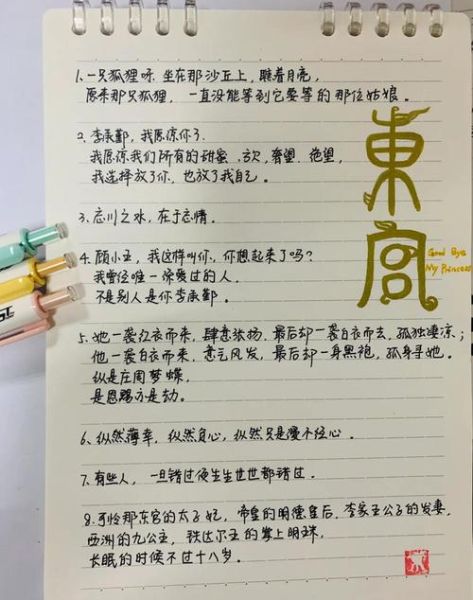 1.一只狐狸呀 坐在那沙丘上,瞧着月亮,
原来那只狐狸,一直没能等到它要等的那位姑娘。
2.李承鄞,我原谅你了.
我原谅我们所有的甜蜜、喜欢、奢望、绝望,
我选择放了你,也放了我自己。
3.忘川之水,在于忘情。
4.顾小五,我这样叫你,你想起来了吗?
我曾经唯一深爱过的人.
不是别人是你李承鄞。
5.她一袭红衣而来,肆意张扬,最后却一袭白衣而去,孤独凄凉;
他一袭白衣而来,意气风发,最后却一身黑袍,孤身寻她。
纵是庄周梦蝶,
是恩赐亦是劫。
6、纵然薄幸,纵然负心,纵然只是漫不经心。
7.有些人,一旦错过便生生世世都错过。
8.可怜那东宫的太子妃,帝皇的明德皇后,李家五公子的发妻,
西洲的九公主,铁达尔王的掌上明珠,
长眠的时候不过十八岁。
東宮
Good Bye
My Princess